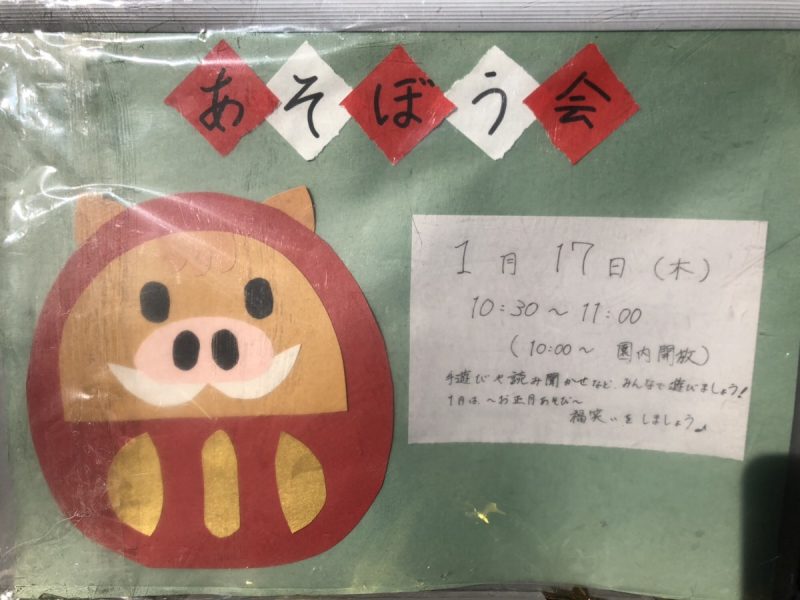 あそぼう会
1月 17日 (木)
10:30～11:00
(10:00～ 園内開放)
手遊びや読み聞かせなど、みんなで遊びましょう!
1月は、～お正月あそび～
福笑いをしましょう♪